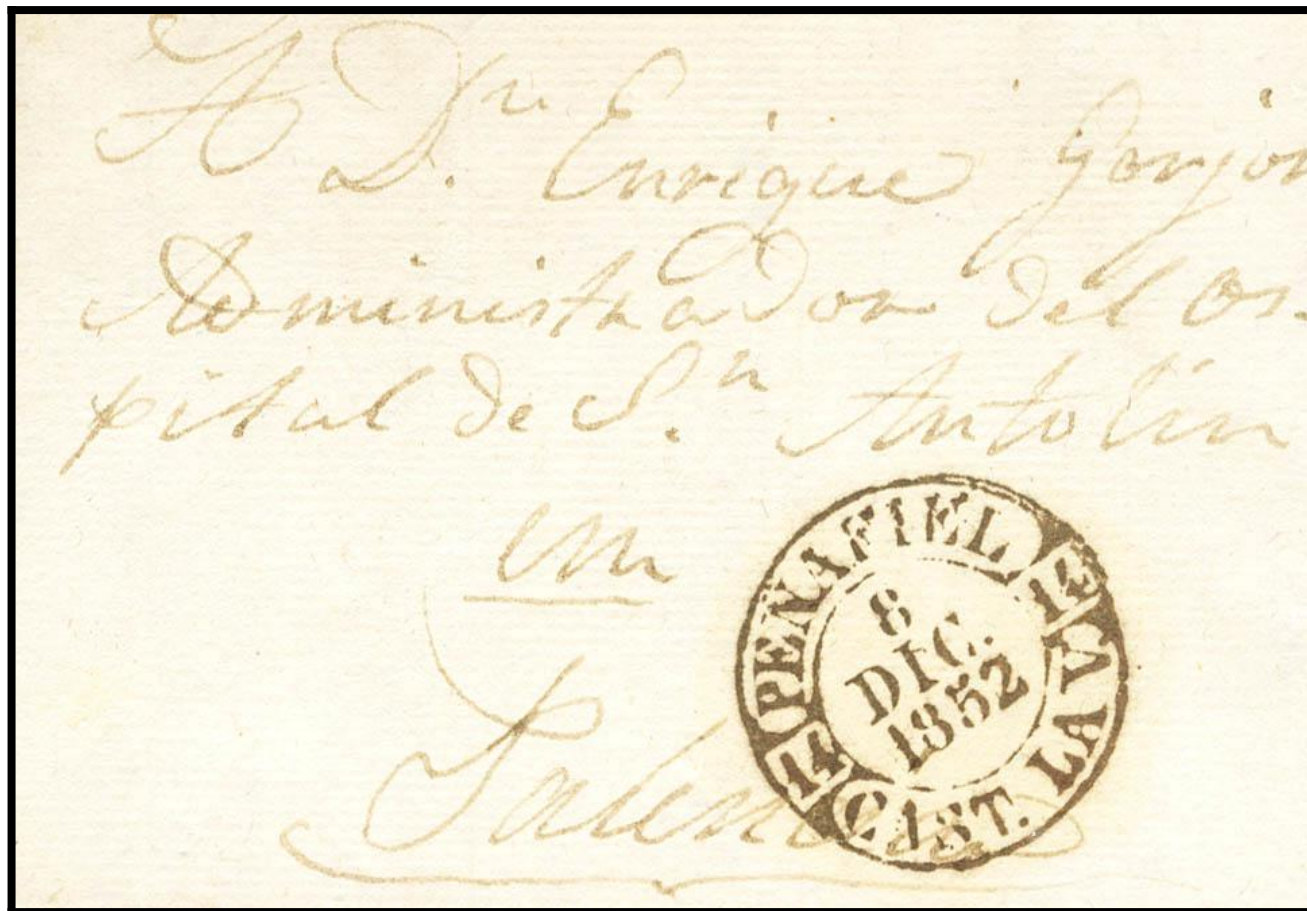 A Dn. Enrique Gorjon
Administrador del Os-
pital de Sn. Antolin
en
Palencia
PEÑAFIEL
14
CAST. LA V.
14
8
DIC.
1852